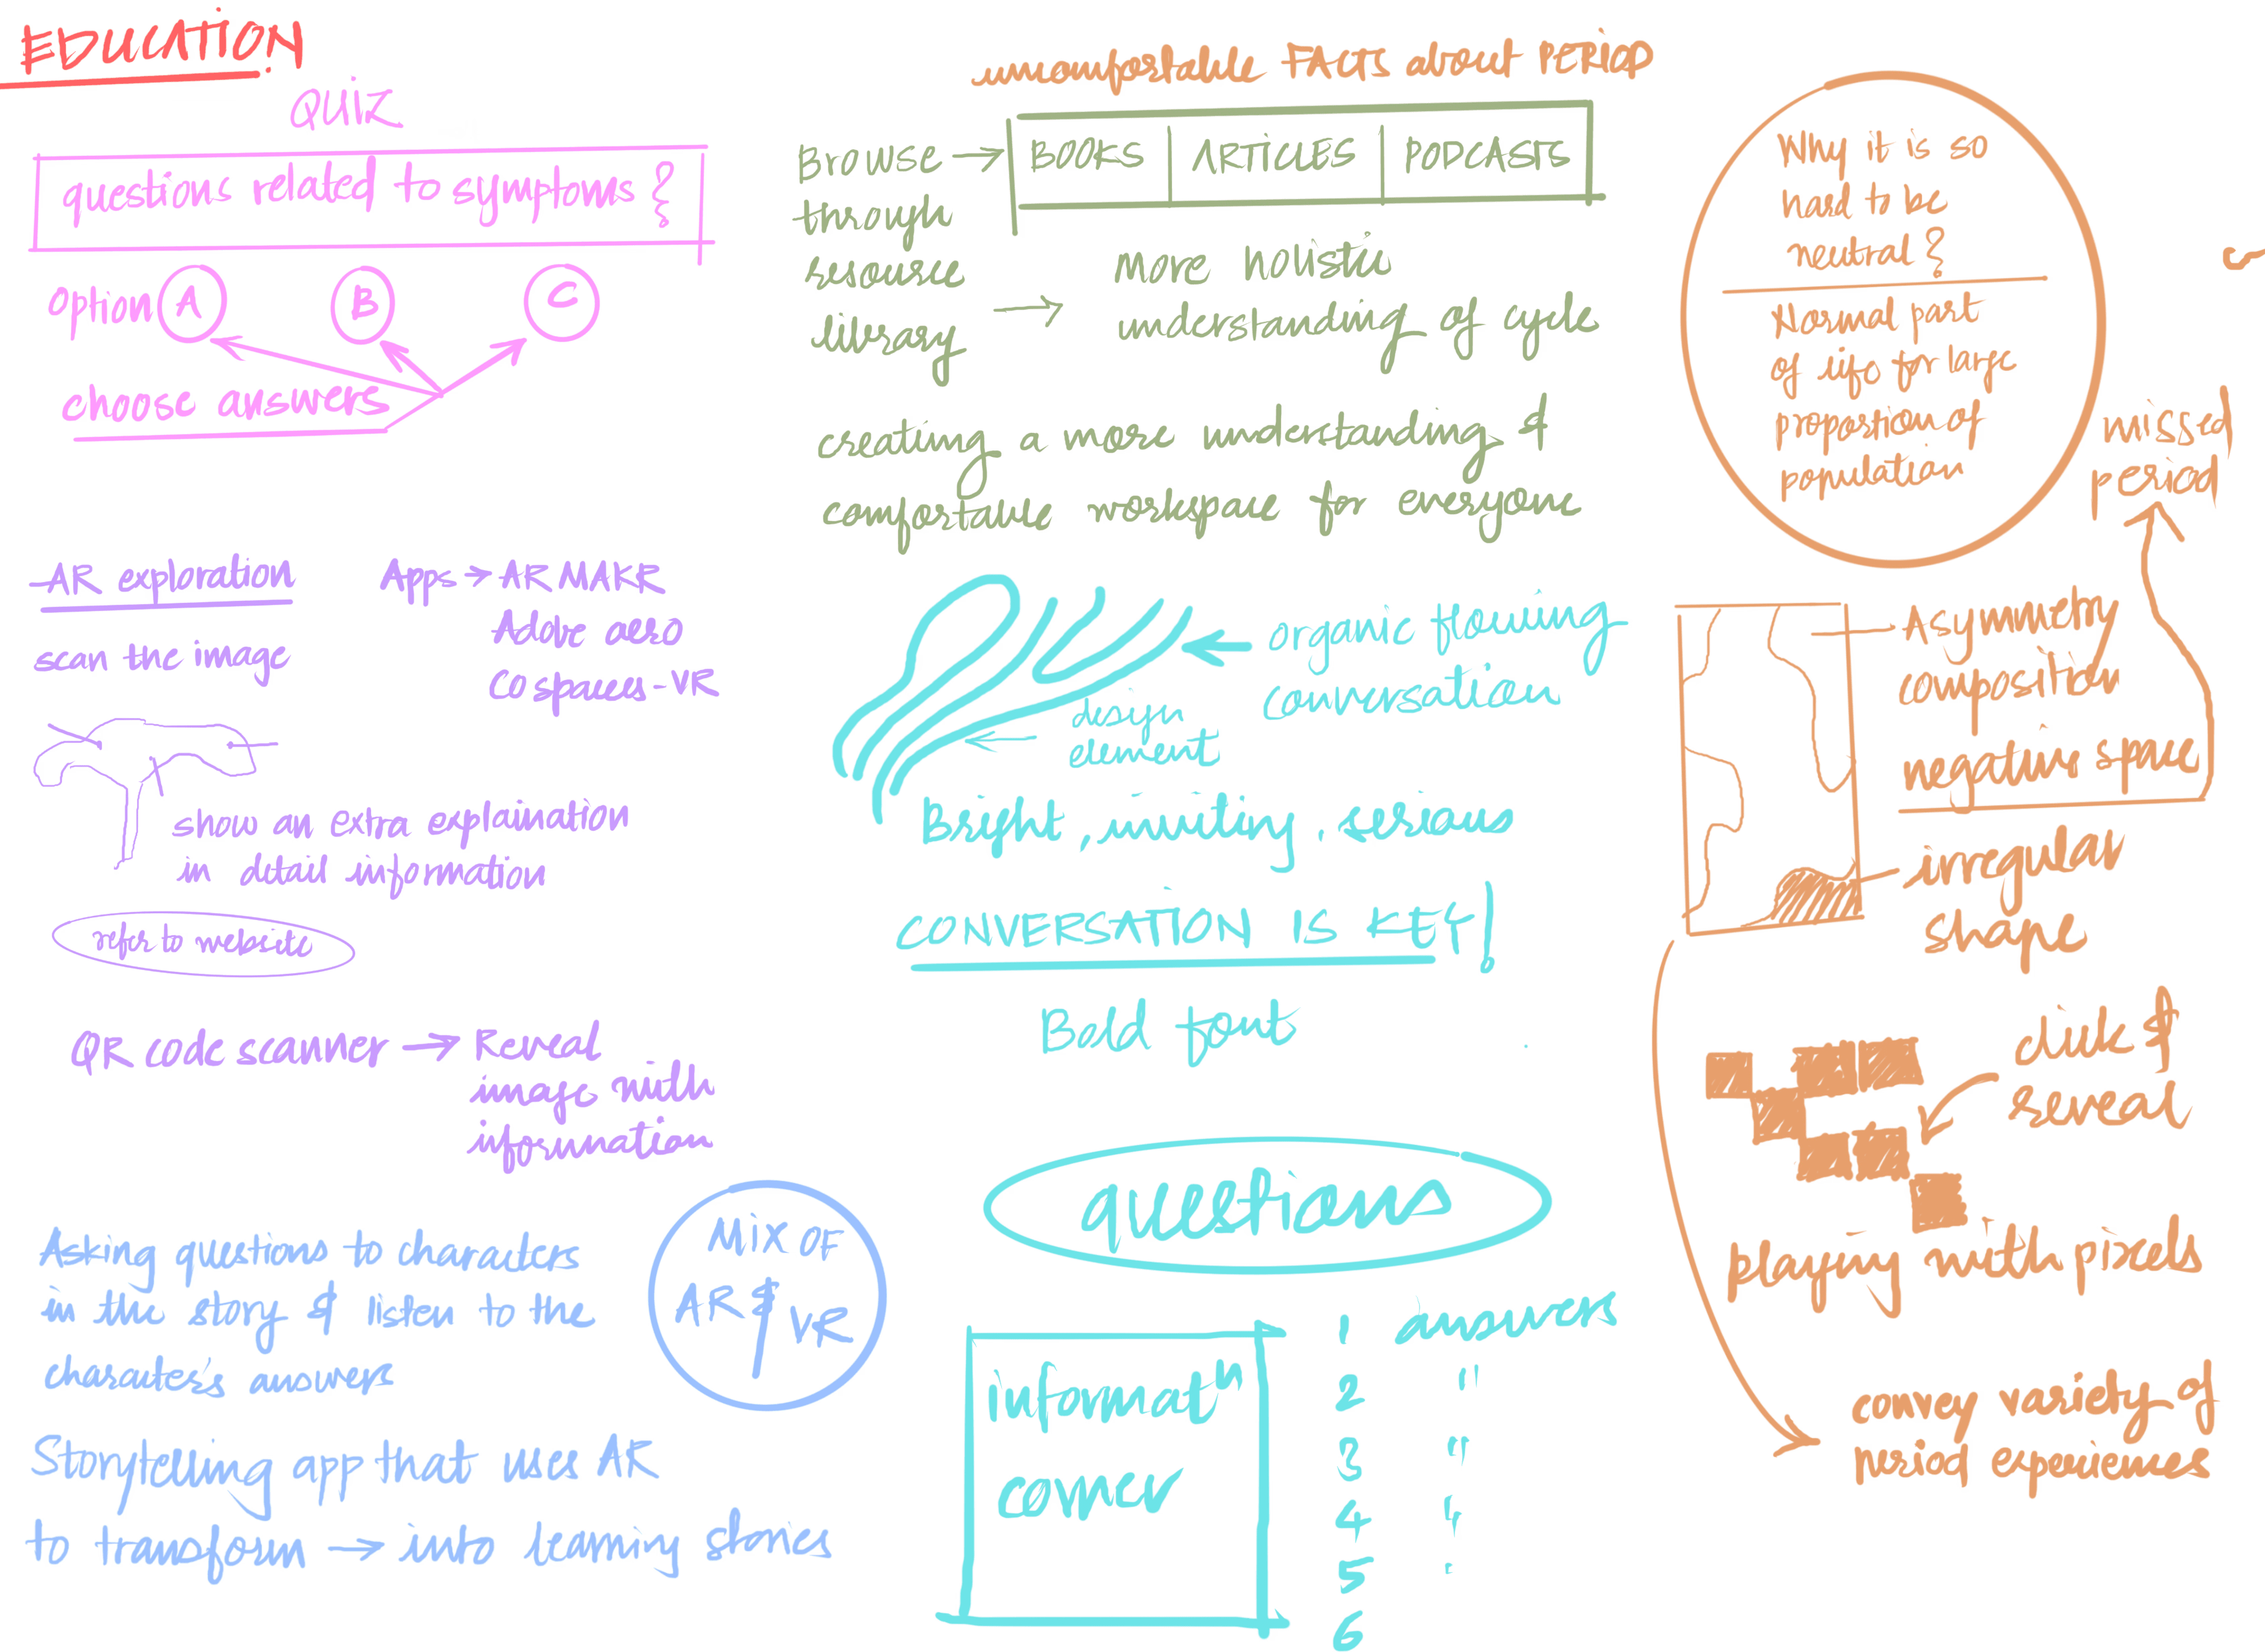 EDUCATION
QUIZ
questions related to symptoms?
option A B C
choose answers
AR exploration
scan the image
Apps → AR MAKR
Adobe aero
Co spaces - VR
show an extra explaination
in detail information
refer to website
QR code scanner → Reveal
image with
information
Asking questions to characters
in the story & listen to the
character's answers
MIX OF
AR &
VR
Storytelling app that uses AR
to transform → into learning stories
uncomfortable FACTS about PERIOD
Browse →
through
resource
library →
BOOKS | ARTICLES | PODCASTS
more holistic
understanding of cycle
creating a more understanding &
comfortable workspace for everyone
organic flowing
conversation
design
element
Bright, inviting, serious
CONVERSATION IS KEY!
Bold fonts
questions
informatn
corner
1 answers
2 "
3 "
4 "
5 "
6
Why it is so
hard to be
neutral?
Normal part
of life for large
proportion of
population
missed
period
Asymmetry
composition
negative space
irregular
shape
click &
reveal
playing with pixels
convey variety of
period experiences